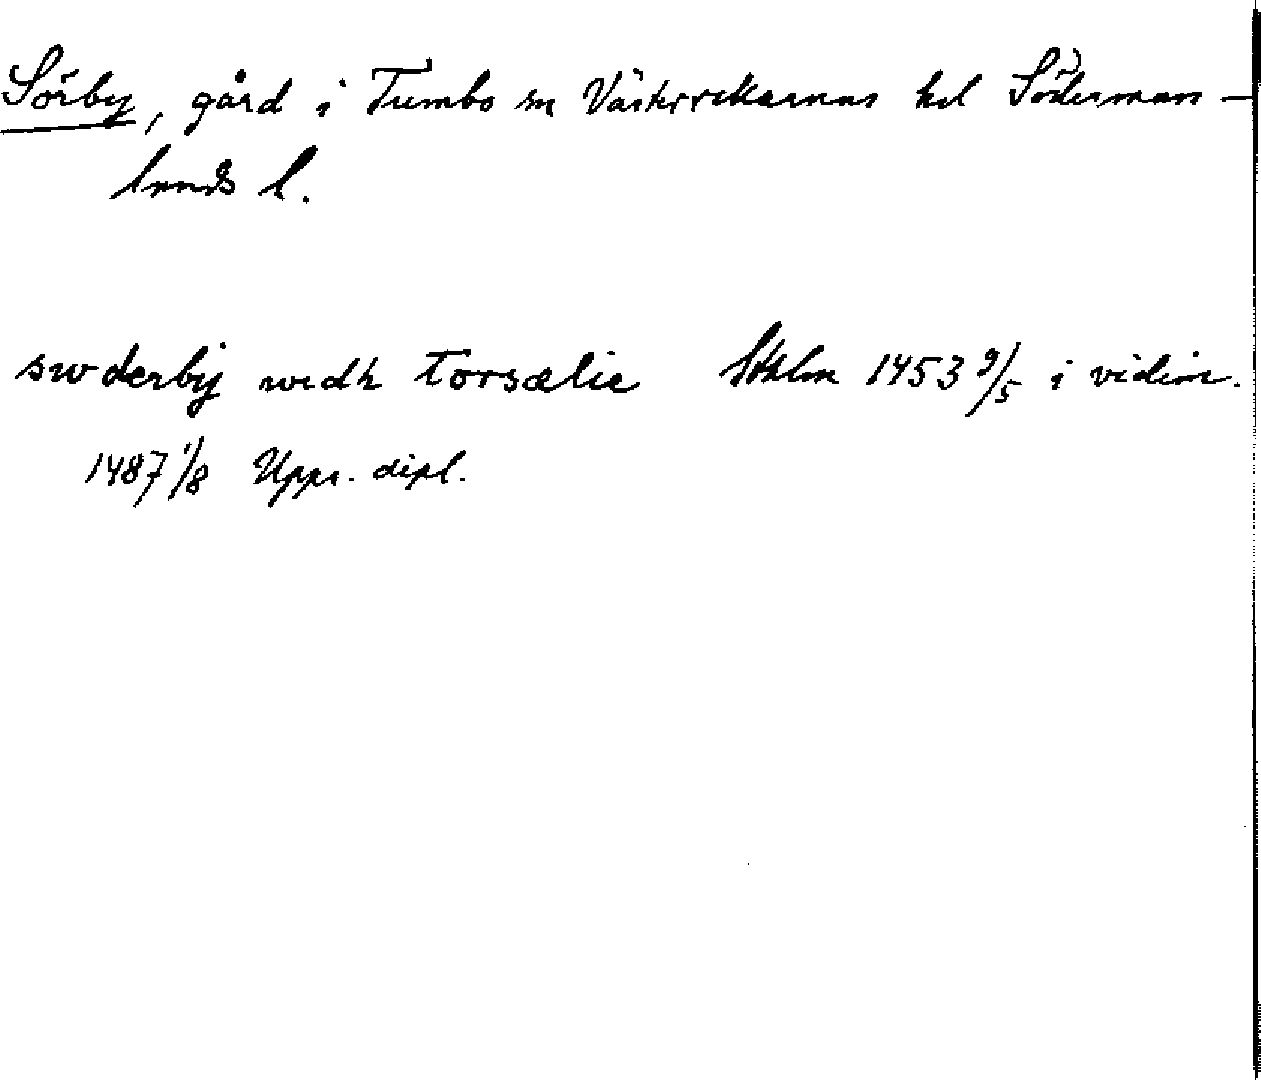 Sörby, gård i Tumbo sn Västerrekarnas hd Söderman-
lands l.
swderbij widh torsælie Sthlm 1453 9/5 i vidim.
1487 1/8 Upps. dipl.